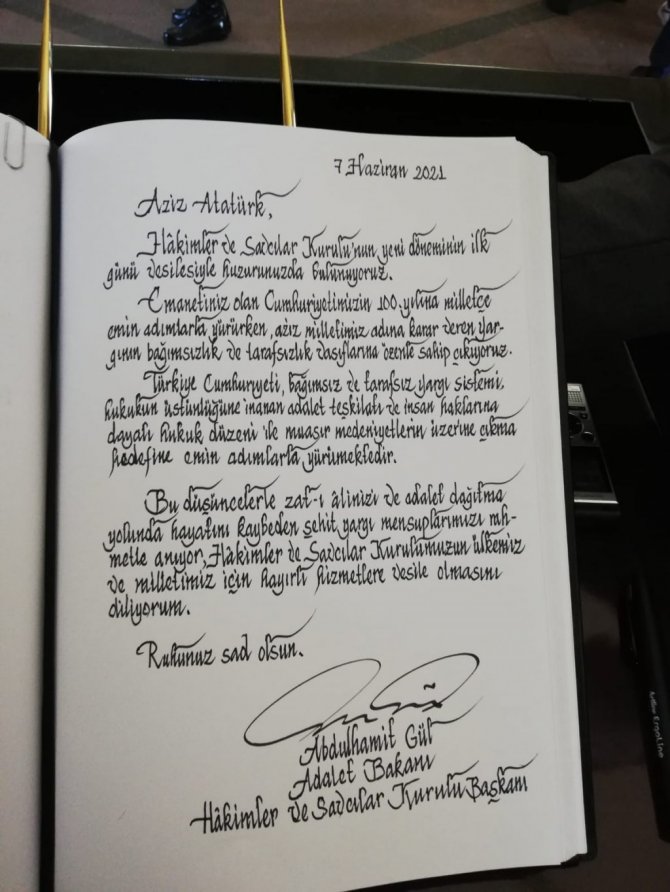 7 Haziran 2021
Aziz Atatürk,
Hâkimler ve Savcılar Kurulu'nun yeni döneminin ilk
günü vesilesiyle huzurunuzda bulunuyoruz.
Emanetiniz olan Cumhuriyetimizin 100. yılına milletçe
emin adımlarla yürürken, aziz milletimiz adına karar veren yar-
gının bağımsızlık ve tarafsızlık vasıflarına özenle sahip çıkıyoruz.
Türkiye Cumhuriyeti, bağımsız ve tarafsız yargı sistemi,
hukukun üstünlüğüne inanan adalet teşkilatı ve insan haklarına
dayalı hukuk düzeni ile muasır medeniyetlerin üzerine çıkma
hedefine emin adımlarla yürümektedir.
Bu düşüncelerle zat-ı âlinizi ve adalet dağıtma
yolunda hayatını kaybeden şehit yargı mensuplarımızı rah-
metle anıyor, Hâkimler ve Savcılar Kurulumuzun ülkemiz
ve milletimiz için hayırlı hizmetlere vesile olmasını
diliyorum.
Ruhunuz şad olsun.
Abdulhamit Gül
Adalet Bakanı
Hâkimler ve Savcılar Kurulu Başkanı